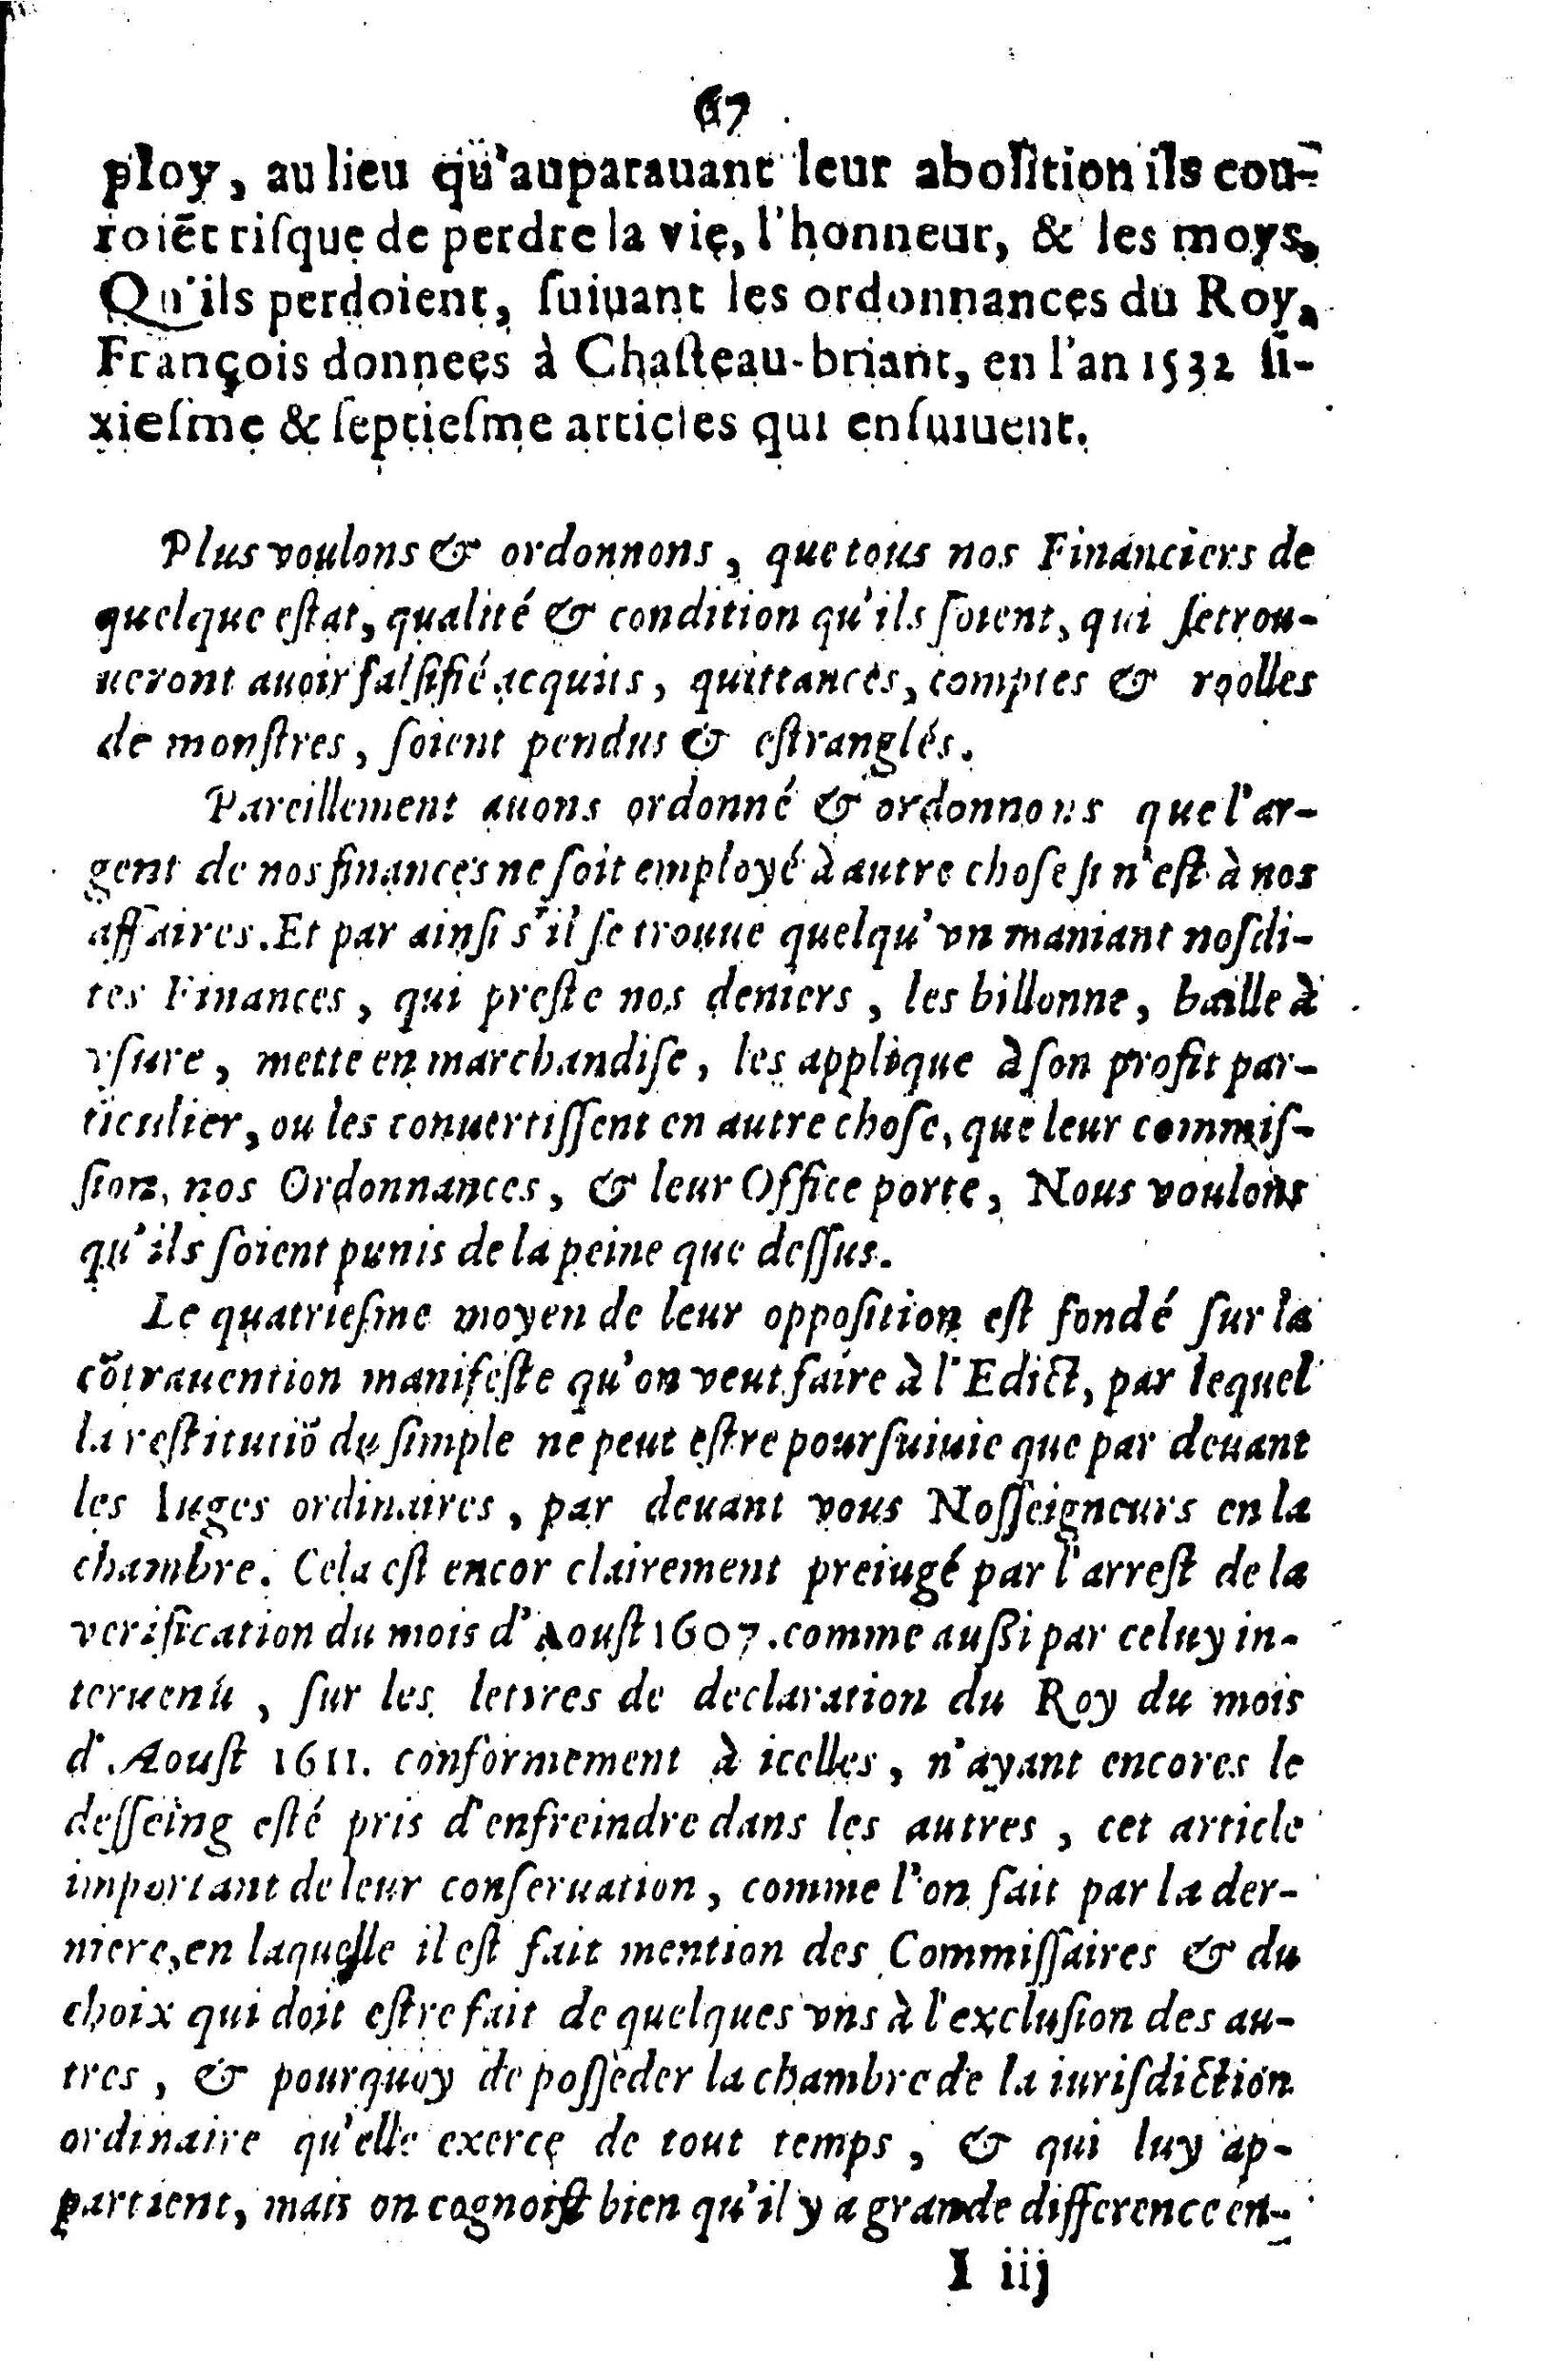 67
ploy, au lieu qu'auparauant leur abolition ils cou-
roiẽt risque de perdre la vie, l'honneur, & les moys,
Qu'ils perdoient, suiuant les ordonnances du Roy,
François donnees à Chasteau-briant, en l'an 1532 si-
xiesme & septiesme articles qui ensuiuent.
Plus voulons & ordonnons, que tous nos Financiers de
quelque estat, qualité & condition qu'ils soient, qui se trou-
ueront auoir falsifié acquits, quittances, comptes & roolles
de monstres, soient pendus & estranglés.
Pareillement auons ordonné & ordonnons que l'ar-
gent de nos finances ne soit employé à autre chose si n'est à nos
affaires. Et par ainsi s'il se trouue quelqu'vn maniant nosdi-
tes Finances, qui preste nos deniers, les billonne, baille à
vsure, mette en marchandise, les applique à son profit par-
ticulier, ou les conuertissent en autre chose, que leur commis-
sion, nos Ordonnances, & leur Office porte, Nous voulons
qu'ils soient punis de la peine que dessus.
Le quatriesme moyen de leur opposition est fondé sur la
cõtrauention manifeste qu'on veut faire à l'Edict, par lequel
la restitutiõ du simple ne peut estre poursuiuie que par deuant
les Iuges ordinaires, par deuant vous Nosseigneurs en la
chambre. Cela est encor clairement preiugé par l'arrest de la
verification du mois d'Aoust 1607. comme aussi par celuy in-
teruenu, sur les lettres de declaration du Roy du mois
d'Aoust 1611. conformement à icelles, n'ayant encores le
desseing esté pris d'enfreindre dans les autres, cet article
important de leur conseruation, comme l'on fait par la der-
niere, en laquelle il est fait mention des Commissaires & du
choix qui doit estre fait de quelques vns à l'exclusion des au-
tres, & pourquoy de posseder la chambre de la iurisdiction
ordinaire qu'elle exerce de tout temps, & qui luy ap-
partient, mais on cognoist bien qu'il y a grande difference en-
I iij